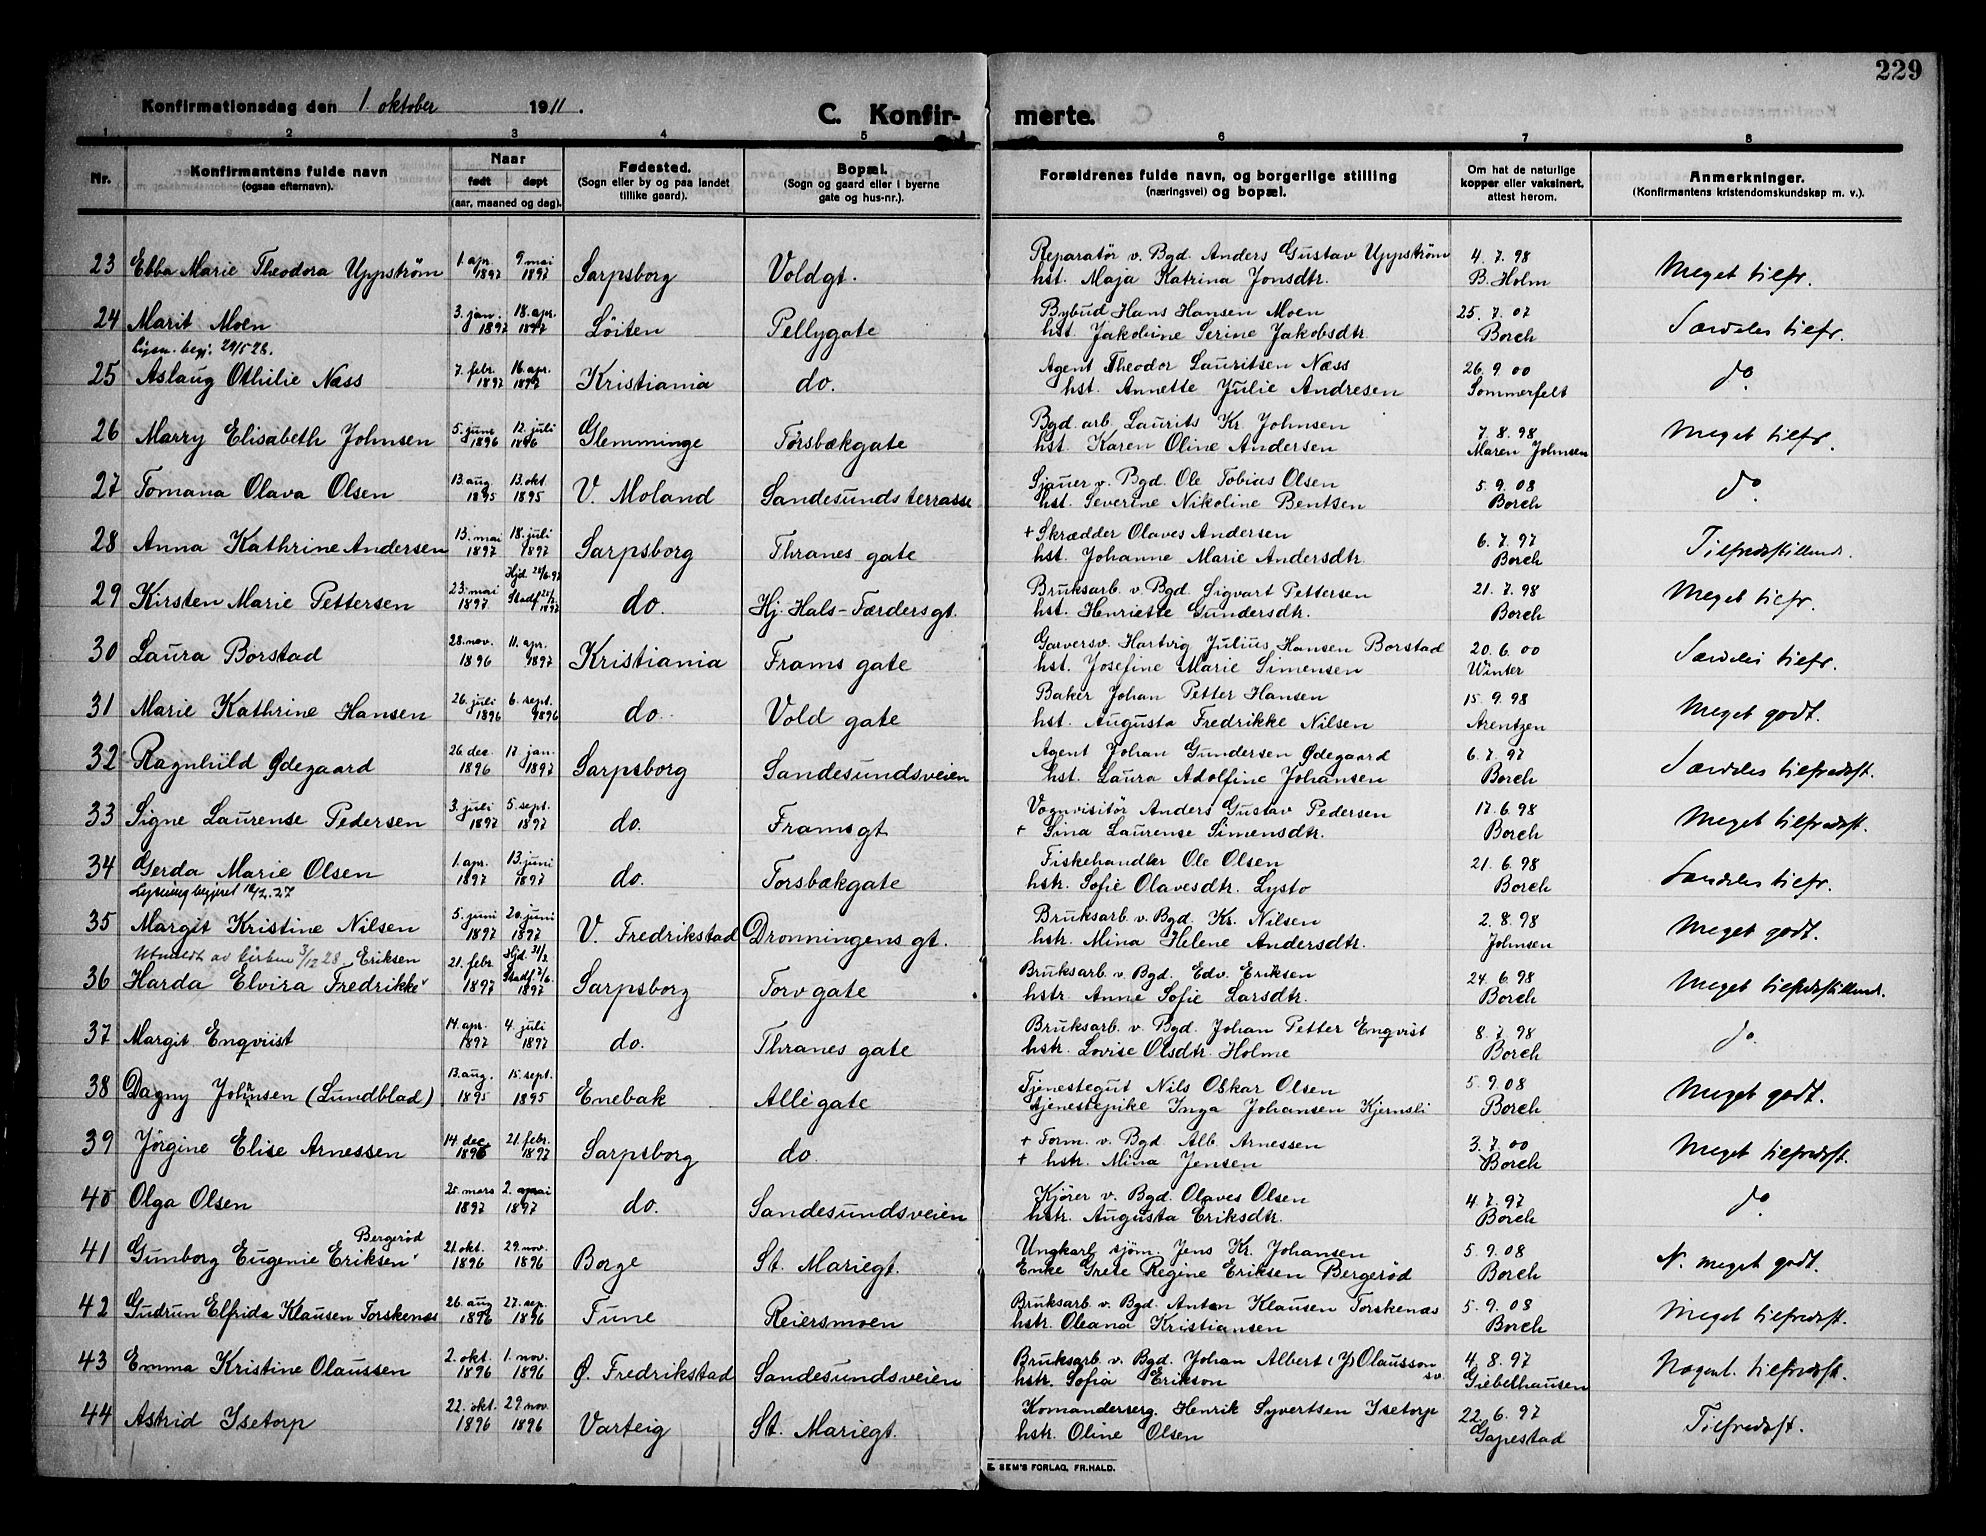 229
Konfirmationsdag den 1. oktober 1911.
C. Konfir- merte.
1 2 3 4 5 6 7 8
Nr. Konfirmantens fulde navn (ogsaa efternavn). Naar født døpt (aar, maaned og dag). Fødested. (Sogn eller by og paa landet tillike gaard). Bopæl. (Sogn og gaard eller i byerne gate og hus-nr.). Forældrenes fulde navn, og borgerlige stilling (næringsvei) og bopæl. Om hat de naturlige kopper eller vaksinert, attest herom. Anmerkninger. (Konfirmantens kristendomskundskap m. v.).
23 Ebba Marie Theodora Uppstrøm 1. apr. 1897 9 mai 1897 Sarpsborg Voldgt. Reparatør v. Bgd. Anders Gustav Uppstrøm 4. 7. 98 Meget tilfr.
hst. Maja Katrina Jonsdtr. B. Holm
24 Marit Moen 3. jan. 1897 18. apr. 1897 Løiten Pellygate Bybud Hans Hansen Moen 25. 7. 07 Særdeles tilfr.
Lysn. begj. 29/5 28. hst. Jakobine Serine Jakobsdtr. Borch
25 Aslaug Othilie Næss 7. febr. 1897 16. apr. 1897 Kristiania do. Agent Theodor Lauritsen Næss 26. 9. 00 do
hst. Annette Julie Andresen Sommerfelt
26 Marry Elisabeth Johnsen 5. juni 1896 12. juli 1896 Glemminge Torsbækgate Bgd. arb. Laurits Kr. Johnsen 7. 8. 98 Meget tilfr.
hst. Karen Oline Andersen Maren Johnsen
27 Tomana Olava Olsen 13. aug. 1895 13. okt. 1895 V. Moland Sandesunds terrasse Sjauer v. Bgd. Ole Tobias Olsen 5. 9. 08 do
hst. Severine Nikoline Bentsen Borch
28 Anna Kathrine Andersen 13. mai 1897 18. juli 1897 Sarpsborg Thranes gate + Skrædder Olaves Andersen 6. 7. 97 Tilfredsstillende.
hst. Johanne Marie Andersdtr. Borch
29 Kirsten Marie Pettersen 23. mai 1897 Hjd. Stadf. 1897 do. Hj. Hals-Færdersgt. Bruksarb. v. Bgd. Sigvart Pettersen 21. 7. 98 Meget tilfr.
hst. Henriette Gundersdtr. Borch
30 Laura Borstad 28. nov. 1896 11. apr. 1897 Kristiania Frams gate Garversv. Hartvig Julius Hansen Borstad 20. 6. 00 Særdeles tilfr.
hst. Josefine Marie Simensen Winter
31 Marie Kathrine Hansen 26. juli 1896 6. sept. 1896 do. Vold gate Baker Johan Petter Hansen 15. 9. 98 Meget godt.
hst. Augusta Fredrikke Nilsen Arentzen
32 Ragnhild Ødegaard 26. dec. 1896 17. jan. 1897 Sarpsborg Sandesundsveien Agent Johan Gundersen Ødegaard 6. 7. 97 Særdeles tilfredsst.
hst. Laura Adolfine Johansen Borch
33 Signe Laurense Pedersen 3. juli 1897 5. sept. 1897 do. Framsgt Vognvisitør Anders Gustav Pedersen 17. 6. 98 Meget tilfredsst.
+ Sina Laurense Simensdtr. Borch
34 Gerda Marie Olsen 1. apr. 1897 13. juni 1897 do. Torsbækgate Fiskehandler Ole Olsen 21. 6. 98 Særdeles tilfr.
Lysning begjæret 12/2. 27 hstr. Sofie Olavesdtr. Lysto Borch
35 Margit Kristine Nilsen 5. juni 1897 20. juni 1897 V. Fredrikstad Dronningens gt. Bruksarb. v. Bgd. Kr. Nilsen 2. 8. 98 Meget godt.
Utmeldt av kirken 3/12 28 hstr. Mina Helene Andersdtr. Johnsen
36 Harda Elvira Fredrikke Eriksen 21. febr. 1897 Hjd. 31/3 Stadf. 7/6. 1897 Sarpsborg Torvgate Bruksarb. v. Bgd. Edv. Eriksen 24. 6. 98 Meget tilfredsstillende.
hstr. Anne Sofie Larsdtr. Borch
37 Margit Enqvist 14. apr. 1897 4. juli 1897 do. Thranes gate Bruksarb. v. Bgd. Johan Petter Enqvist 8. 7. 98 do.
hstr. Lovise Olsdtr. Holme Borch
38 Dagny Johnsen (Lundblad) 13. aug. 1895 15. sept. 1895 Enebak Allégate Tjenestegut Nils Oskar Olsen 5. 9. 08 Meget godt.
tjenestepike Inga Johansen Kjernsli Borch
39 Jørgine Elise Arnessen 14 dec. 1896 21. febr. 1897 Sarpsborg do. + Form. v. Bgd. Alb. Arnessen 3. 7. 00 Meget tilfredsst.
+ hstr. Mina Jensen Borch
40 Olga Olsen 25. mars 1897 2. mai 1897 do. Sandesundsveien Kjører v. Bgd. Olaves Olsen 4. 7. 97 do.
hstr. Augusta Eriksdtr. Borch
41 Gunborg Eugenie Eriksen Bergerød 21. okt. 1896 29. nov. 1896 Borge St. Mariegt. Ungkarl sjøm. Jens Kr. Johansen 5. 9. 08 N. meget godt.
Enke Grete Regine Eriksen Bergerød Borch
42 Gudrun Elfrida Klausen Torskenæs 26. aug 1896 27. sep. 1896 Tune Reiersmoen Bruksarb. v. Bgd. Anton Klausen Torskenæs 5. 9. 08 Meget tilfredsst.
hstr. Oleana Kristiansen Borch
43 Emma Kristine Olaussen 2. okt. 1896 1. nov. 1896 Ø. Fredrikstad Sandesundsveien Bruksarb. v. Bgd. Johan Albert Olausson 4. 8. 97 Nogenl. tilfredsst.
hstr. Sofia Erikson sv. Giebelhausen
44 Astrid Isetorp 22. okt. 1896 29 nov. 1896 Varteig St. Mariegt. Komanderserg. Henrik Syvertsen Isetorp 22. 6. 97 Tilfredsst.
hstr. Oline Olsen Gapestad
E. SEM'S FORLAG, FR.HALD.